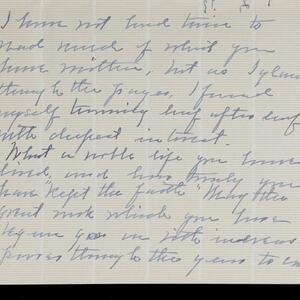 I have not had time to
read much of what you
have written, but as I glanc
through the pages, I found
myself turning leaf after leaf
with deepest interest.
"What a noble life you have
lived, and how truly you
have "kept the faith" May the
great work which you have
begun go on with increas
power through the years to co